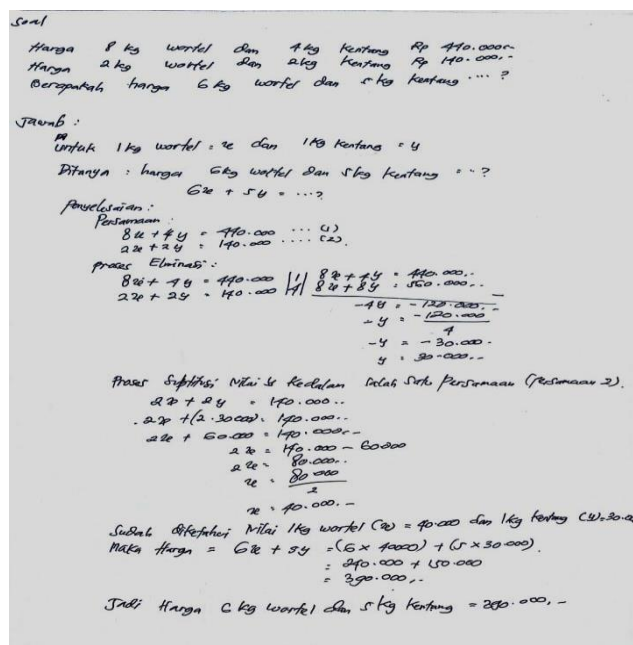 Soal
Harga 8 kg wortel dan 4 kg Kentang Rp 440.000,-
Harga 2 kg wortel dan 2 kg Kentang Rp 140.000,-
Berapakah harga 6 kg wortel dan 5 kg kentang .... ?
Jawab :
untuk 1 kg wortel = x dan 1 kg kentang = y
Ditanya : harga 6 kg wortel dan 5 kg kentang = .. ?
6x + 5y = ...?
Penyelesaian :
Persamaan :
8x + 4y = 440.000 .... (1)
2x + 2y = 140.000 .... (2).
proses Elminasi :
8x + 4y = 440.000 |1| 8x + 4y = 440.000,-
2x + 2y = 140.000 |4| 8x + 8y = 560.000,- -
-4y = -120.000,-
-y = -120.000
4
-y = -30.000-
y = 30.000,-
Proses Subtitusi Nilai y Kedalam Salah Satu Persamaan (Persamaan 2).
2x + 2y = 140.000..
2x + (2.30000) = 140.000..
2x + 60.000 = 140.000,-
2x = 140.000 - 60000
2x = 80.000..
x = 80 000
2
x = 40.000,-
Sudah diketahui Nilai 1kg wortel (x) = 40.000 dan 1kg kentang (y)=30.00
Maka Harga = 6x + 5y = (6 x 40000) + (5 x 30.000).
= 240.000 + 150.000
= 390.000,-
Jadi Harga 6 kg wortel dan 5 kg kentang = 390.000,-